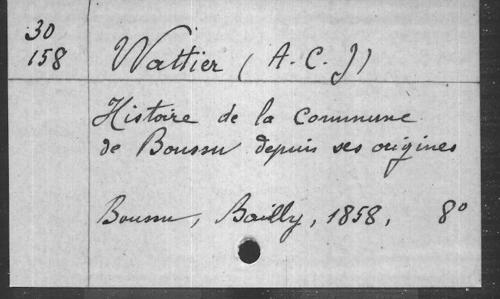 30
158
Wattier (A. C. J)
Histoire de la Commune
de Boussu depuis ses origines
Boussu, Bailly, 1858, 8º